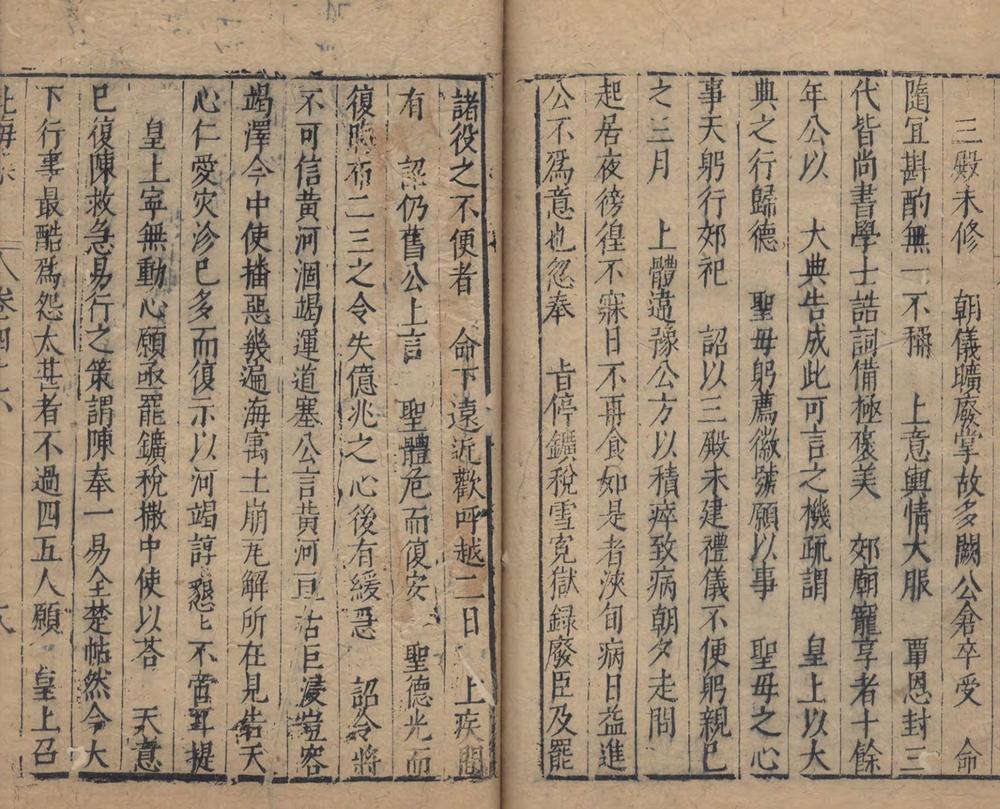 三殿未修　朝儀曠廢掌故多闕公倉卒受　命
隨宜斟酌無一不稱　上意輿情大服　覃恩封三
代皆尚書學士誥詞備極褒美　郊廟寵享者十餘
年公以　大典告成此可言之機疏謂　皇上以大
典之行歸德　聖母躬薦徽號願以事　聖母之心
事天躬行郊祀　詔以三殿未建禮儀不便躬親已
之三月　上體違豫公方以積瘁致病朝夕走問
起居夜徬徨不寐日不再食如是者浹旬病日益進
公不爲意也忽奉　旨停鑛稅雪寃獄録廢臣及罷
諸役之不便者　命下遠近歡呼越二日　上疾間
有　詔仍舊公上言　聖體危而復安　聖德光而
復晦布二三之令失億兆之心後有緩急　詔令將
不可信黃河涸竭運道塞公言黃河亘古巨浸豈容
竭澤今中使播惡幾遍海寓土崩瓦解所在見告天
心仁愛灾沴已多而復示以河竭諄懇上不啻耳提
皇上寧無動心願亟罷鑛稅撤中使以荅　天意
已復陳救急易行之策謂陳奉一易全楚帖然今大
下行事最酷爲怨太甚者不過四五人願　皇上召
北海集　卷四十六